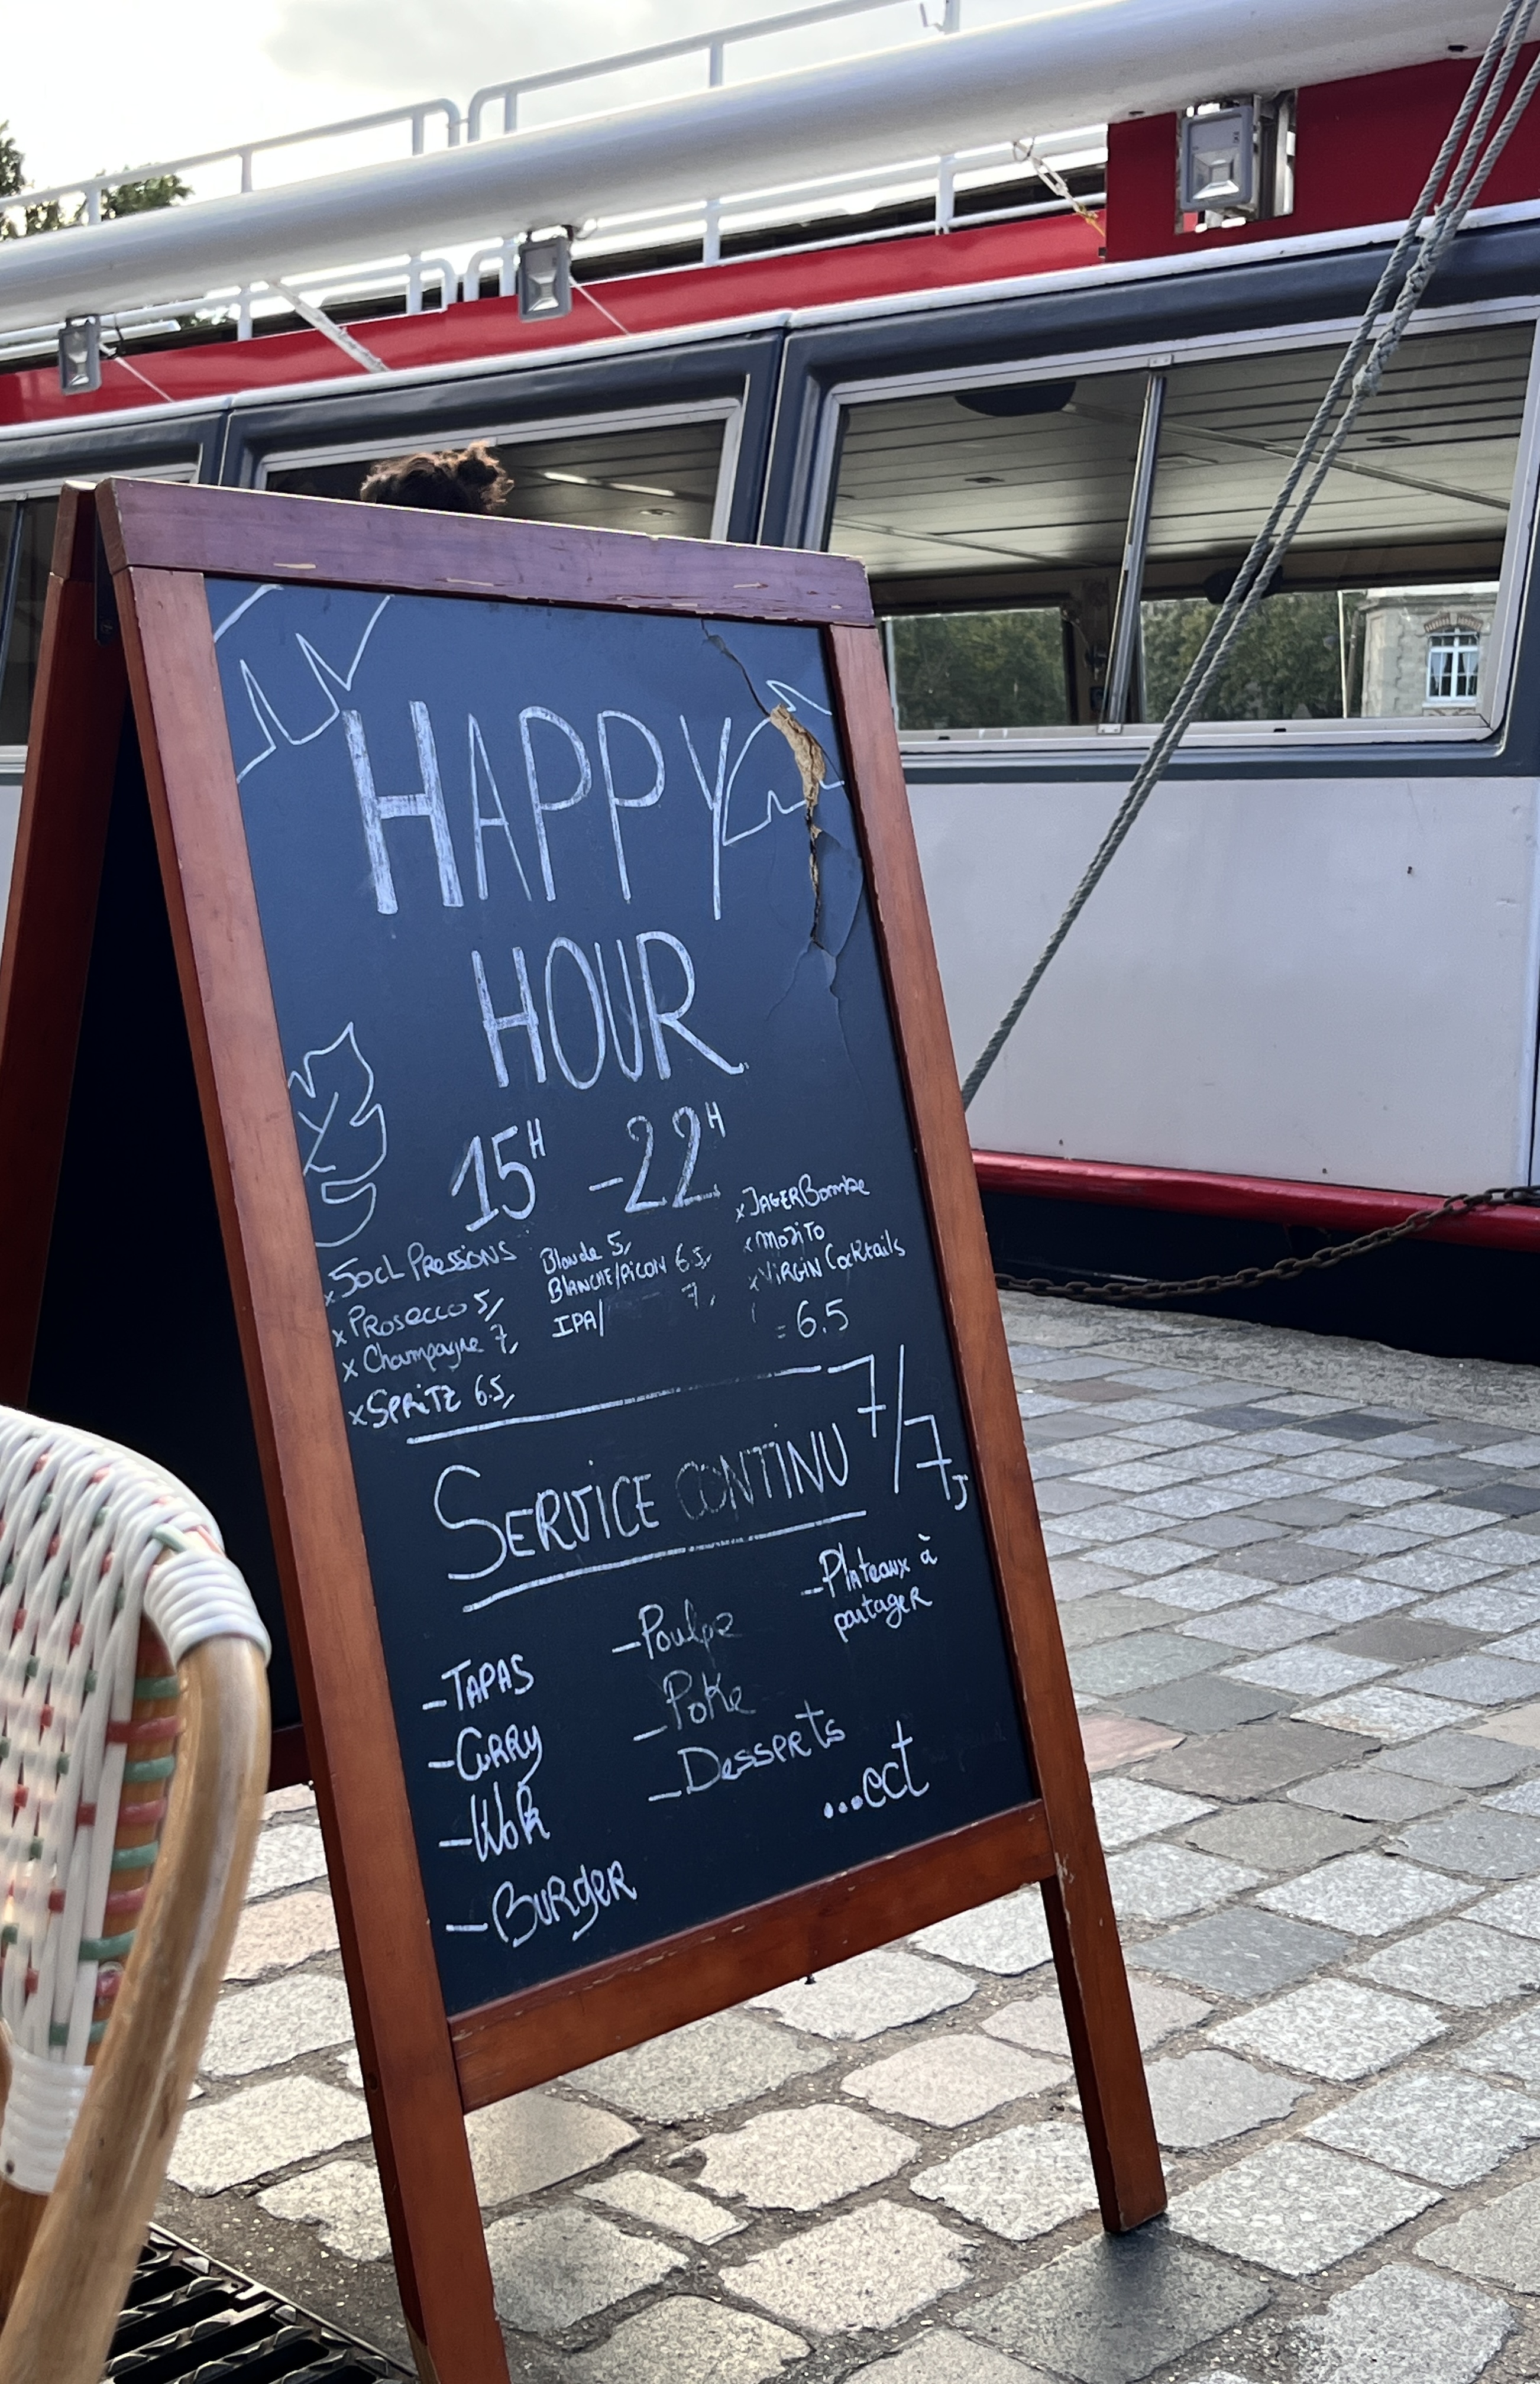 HAPPY
HOUR
15H - 22H
x 50cL PRESSIONS
x PROSECCO 5,
x Champagne 7,
x SPRiTZ 6.5,
Blonde 5,
BLANCHE/PiCON 6.5,
IPA/ 7,
x JAGERBombe
x MOJiTO
x ViRGiN Cocktails
= 6.5
SERVICE CONTINU 7/7J
- TAPAS
- CURRY
- Wok
- BURgER
- Poulpe
- Poke
- Desserts
- Plateaux à
partageR
...ect